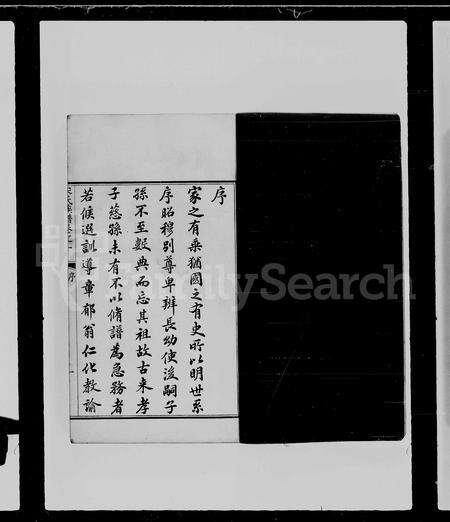 序
家之有乘猶國之有史所以明世系
序昭穆別尊卑辨長幼使後嗣子
孫不至數典而忘其祖故古來孝
子慈孫未有不以脩譜為急務者
若候選訓導章郁翁仁化教諭
序
FamilySearch